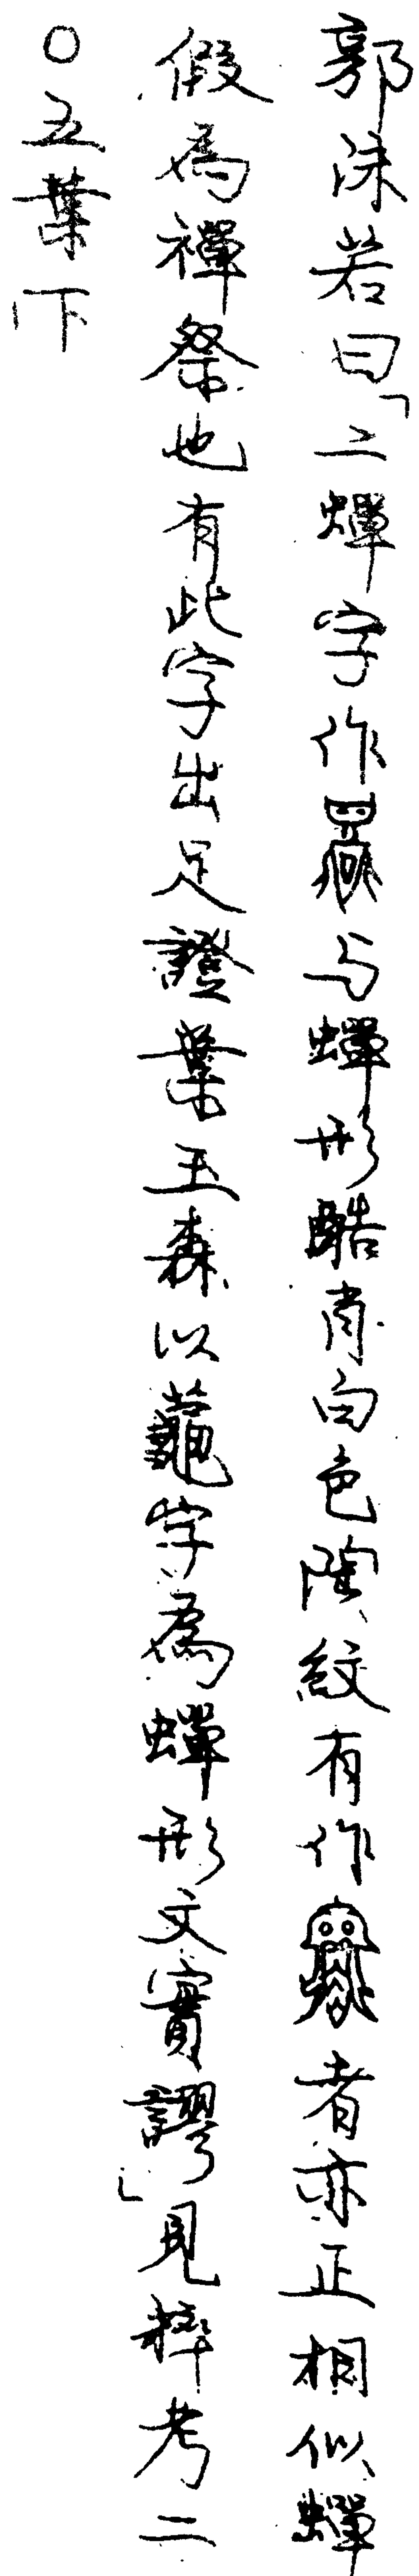 郭沫若曰「二蟬字作与蟬形酷肖白色陶紋有作者亦正相似蟬
假為禪祭也有此字出足證葉玉森以龝字為蟬形文實謬」見粹考二
〇五葉下